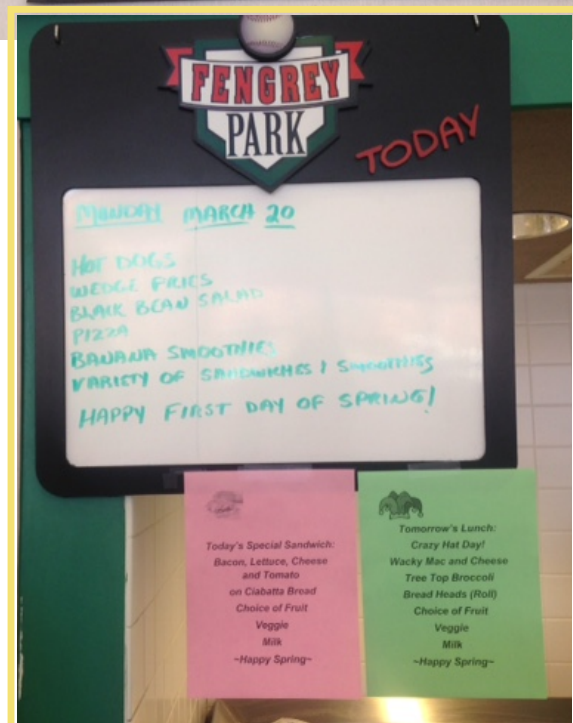 FENGREY
PARK
TODAY
MONDAY MARCH 20
HOT DOGS
WEDGE FRIES
BLACK BEAN SALAD
PIZZA
BANANA SMOOTHIES
VARIETY OF SANDWICHES / SMOOTHIES
HAPPY FIRST DAY OF SPRING!
Today's Special Sandwich:
Bacon, Lettuce, Cheese
and Tomato
on Ciabatta Bread
Choice of Fruit
Veggie
Milk
~Happy Spring~
Tomorrow's Lunch:
Crazy Hat Day!
Wacky Mac and Cheese
Tree Top Broccoli
Bread Heads (Roll)
Choice of Fruit
Veggie
Milk
~Happy Spring~